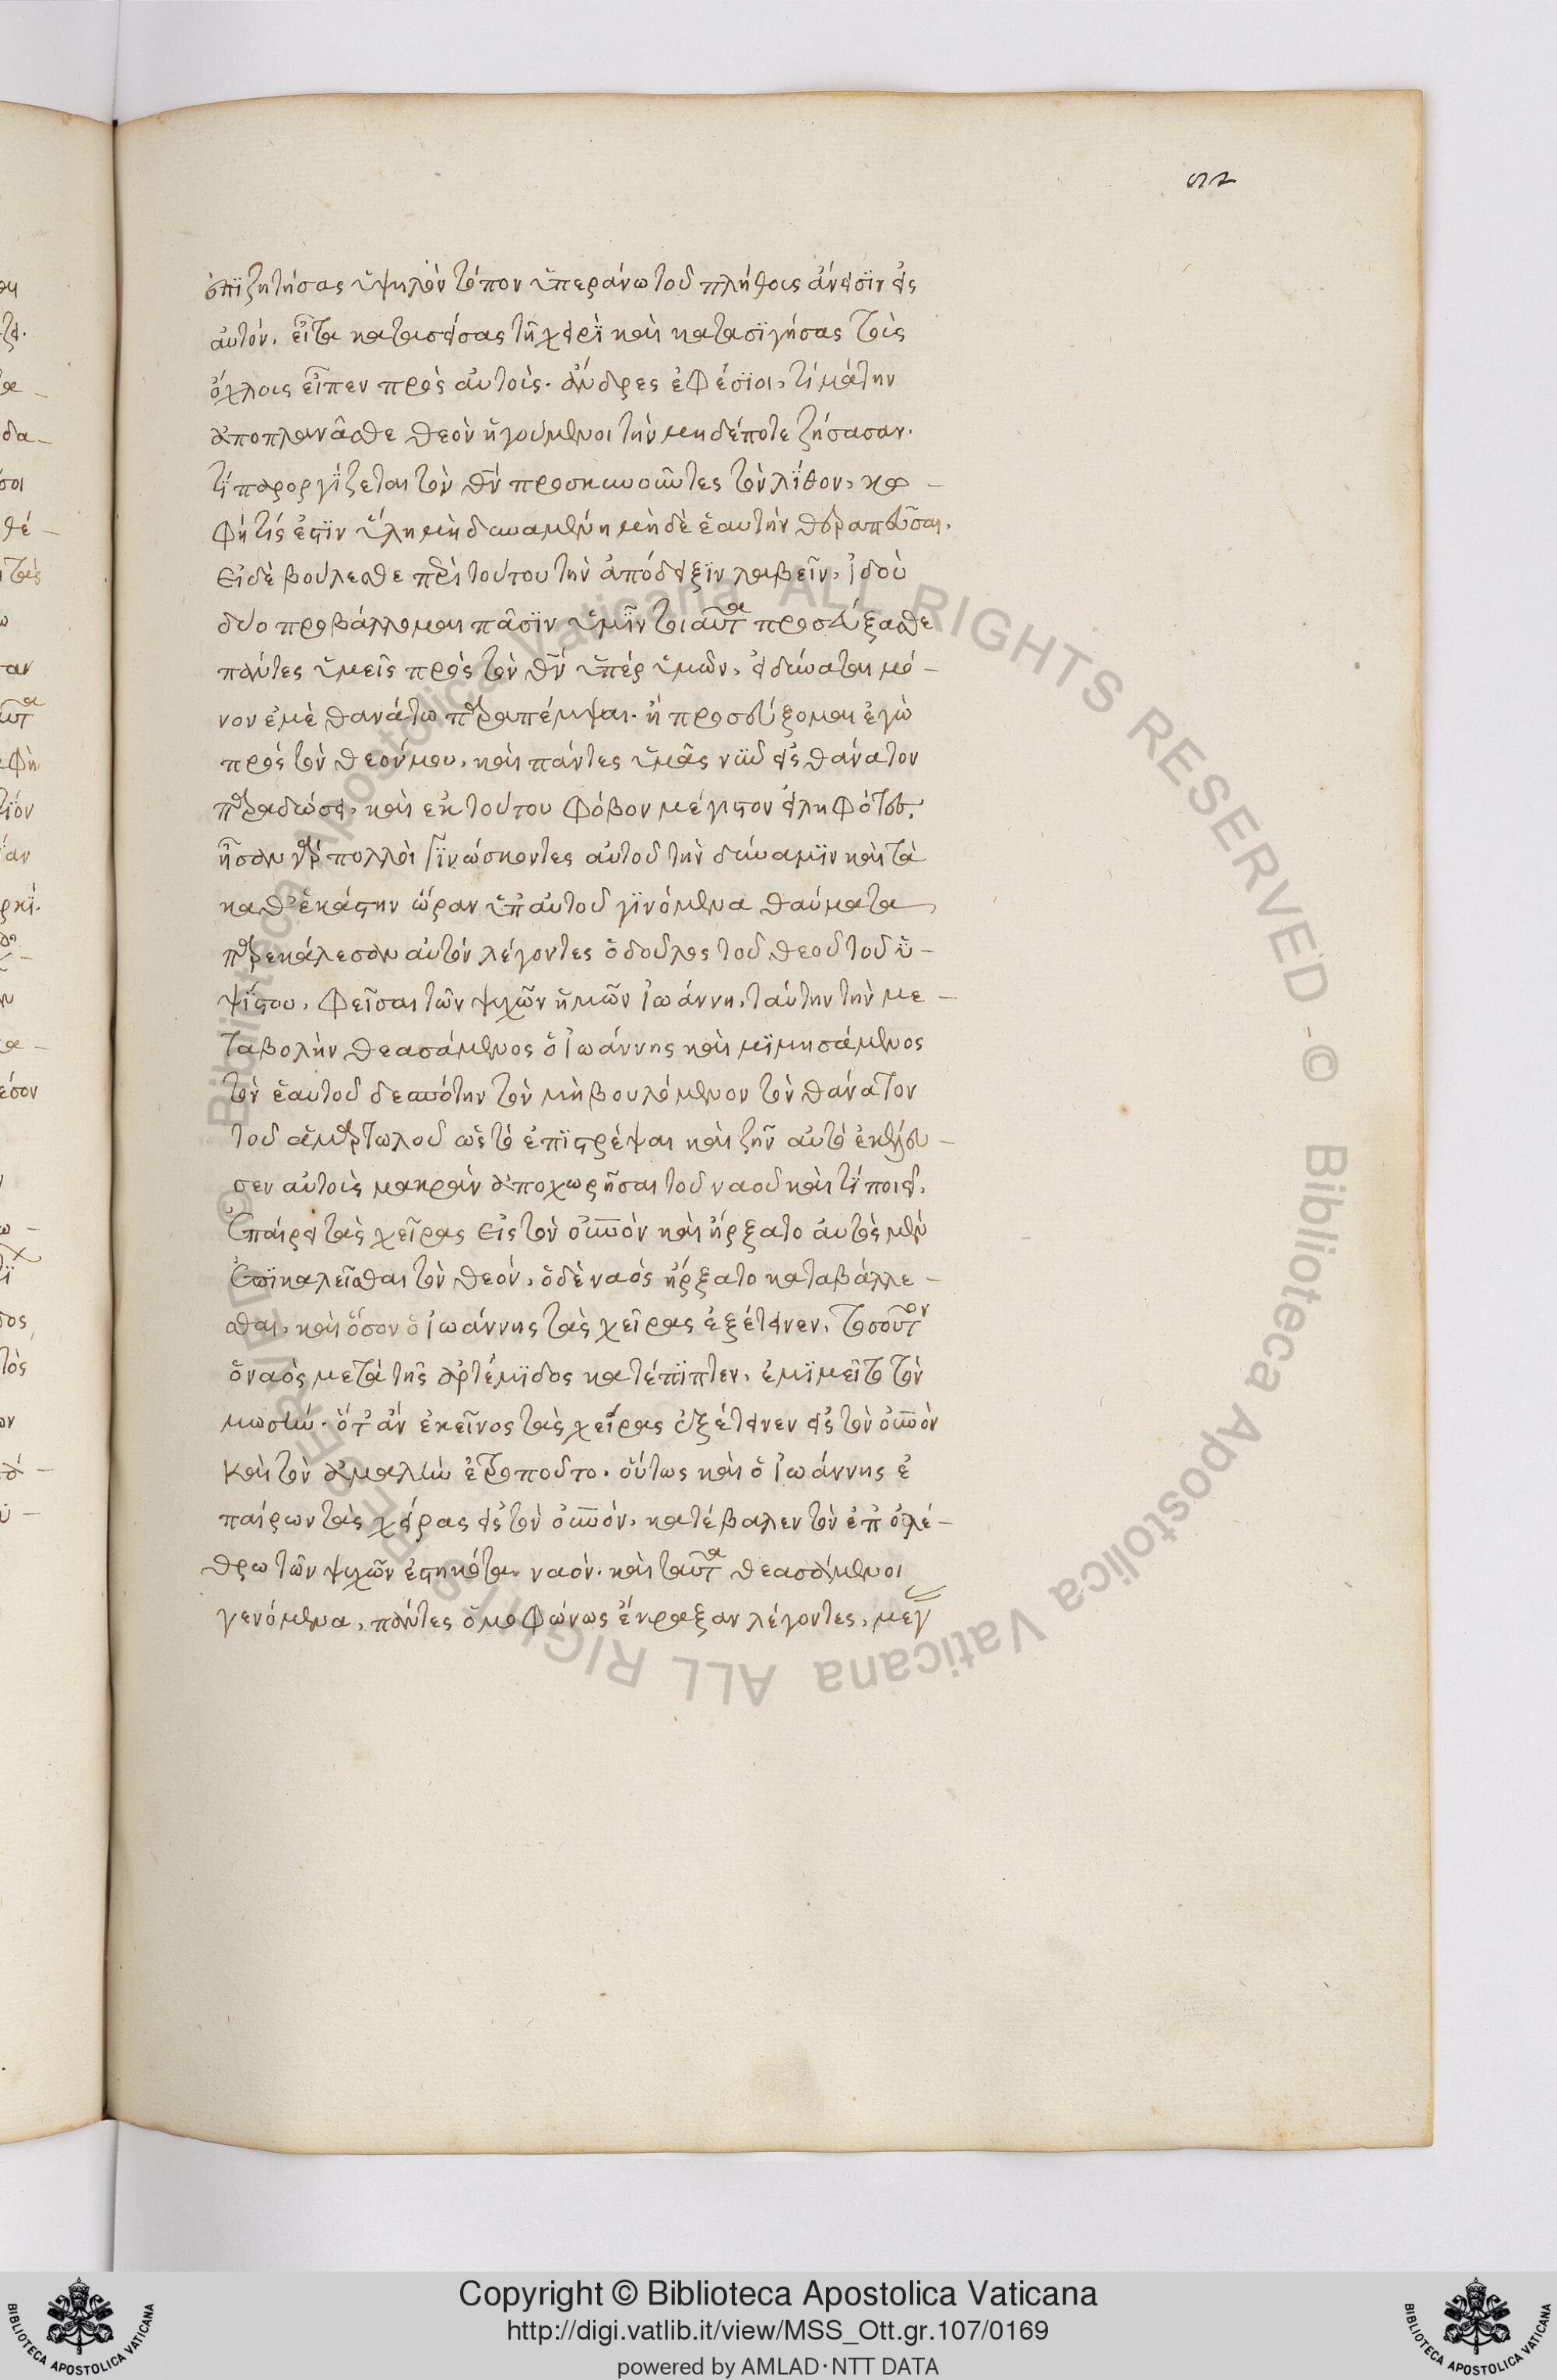 ἐπϊζητήσας ὑψηλὸν τόπον ὑπεράνω τοῦ πλήθους ἄνεισϊν εἰς
αὐτόν. εἶτα κατασείσας τῇ χειρῒ καὶ κατασϊγήσας τοὺς
ὄχλους εἶπεν πρὸς αὐτούς. ἄνδρες ἐφέσϊοι, τί μάτην
ἀποπλανᾶσθε θεὸν ἡγούμενοι τὴν μηδέποτε ζήσασαν.
τί παροργΐζεται τὸν θν προσκυνοῦντες τὸν λΐθον,
φή τίς ἐστϊν ὕλη μὴ δυναμένη μὴδὲ ἑαυτὴν θεραπεῦσαι.
Εἰ δὲ βούλεσθε περὶ τούτου τὴν ἀπόδειξϊν λαβεῖν, ἰδοὺ
δύο προβάλλομαι πᾶσϊν ὑμῖν τοιαῦτα προσεύξασθε
πάντες ὑμεῖς πρὸς τὸν θν ὑπὲρ ὑμῶν, εἰ δύναται μό-
νον ἐμὲ θανάτω παραπέμψαι. ἢ προσεύξομαι ἐγὼ
πρὸς τὸν θεόν μου, καὶ πάντες ὑμᾶς νῦν εἰς θάνατον
παραδώσει. καὶ ἐκ τούτου φόβον μέγιστον εἰληφότες,
ἦσαν γὰρ πολλοὶ γϊνώσκοντες αὐτοῦ τὴν δύναμϊν καὶ τὰ
καθ' ἑκάστην ὥραν ὑπ' αὐτοῦ γϊνόμενα θαύματα,
παρεκάλεσαν αὐτὸν λέγοντες ὁ δοῦλος τοῦ θεοῦ τοῦ ὑ-
ψΐστου, φεῖσαι τῶν ψυχῶν ἡμῶν ἰωάννη, ταύτην τὴν με-
ταβολὴν θεασάμενος ὁ ἰωάννης καὶ μϊμησάμενος
τὸν ἑαυτοῦ δεσπότην τὸν μὴ βουλόμενον τὸν θάνατον
τοῦ ἁμαρτωλοῦ ὡς τὸ ἐπϊστρέψαι καὶ ζῆν αὐτὸ ἐκέλευ-
σεν αὐτοὺς μακρὰν ἀποχωρῆσαι τοῦ ναοῦ καὶ τΐ ποιεῖ.
Ἐπαίρει τὰς χεῖρας εἰς τὸν οὐνον καὶ ἤρξατο αὐτὸς μὲν
ἐπϊκαλεῖσθαι τὸν θεόν, ὁ δὲ ναὸς ἤρξατο καταβάλλε-
σθαι, καὶ ὅσον ὁ ἰωάννης τὰς χεῖρας ἐξέτεινεν, τοσοῦτον
ὁ ναὸς μετὰ τῆς ἀρτέμϊδος κατέπϊπτεν, ἐμϊμεῖτο τὸν
μωσῆν. ὅτ' ἂν ἐκεῖνος τὰς χεῖρας ἐξέτεινεν εἰς τὸν οὐνον
καὶ τὸν ἀμαλὴκ ἐτροποῦτο. οὕτως καὶ ὁ ἰωάννης ἐ
παίρων τὰς χεῖρας εἰς τὸν οὐνον, κατέβαλεν τὸν ἐπ' ὀλέ-
θρω τῶν ψυχῶν ἑστηκότα ναόν. καὶ ταῦτα θεασάμενοι
γενόμενα, πάντες ὁμοφώνως ἔκραξαν λέγοντες, μεγ
Copyright © Biblioteca Apostolica Vaticana
http://digi.vatlib.it/view/MSS_Ott.gr.107/0169
powered by AMLAD·NTT DATA